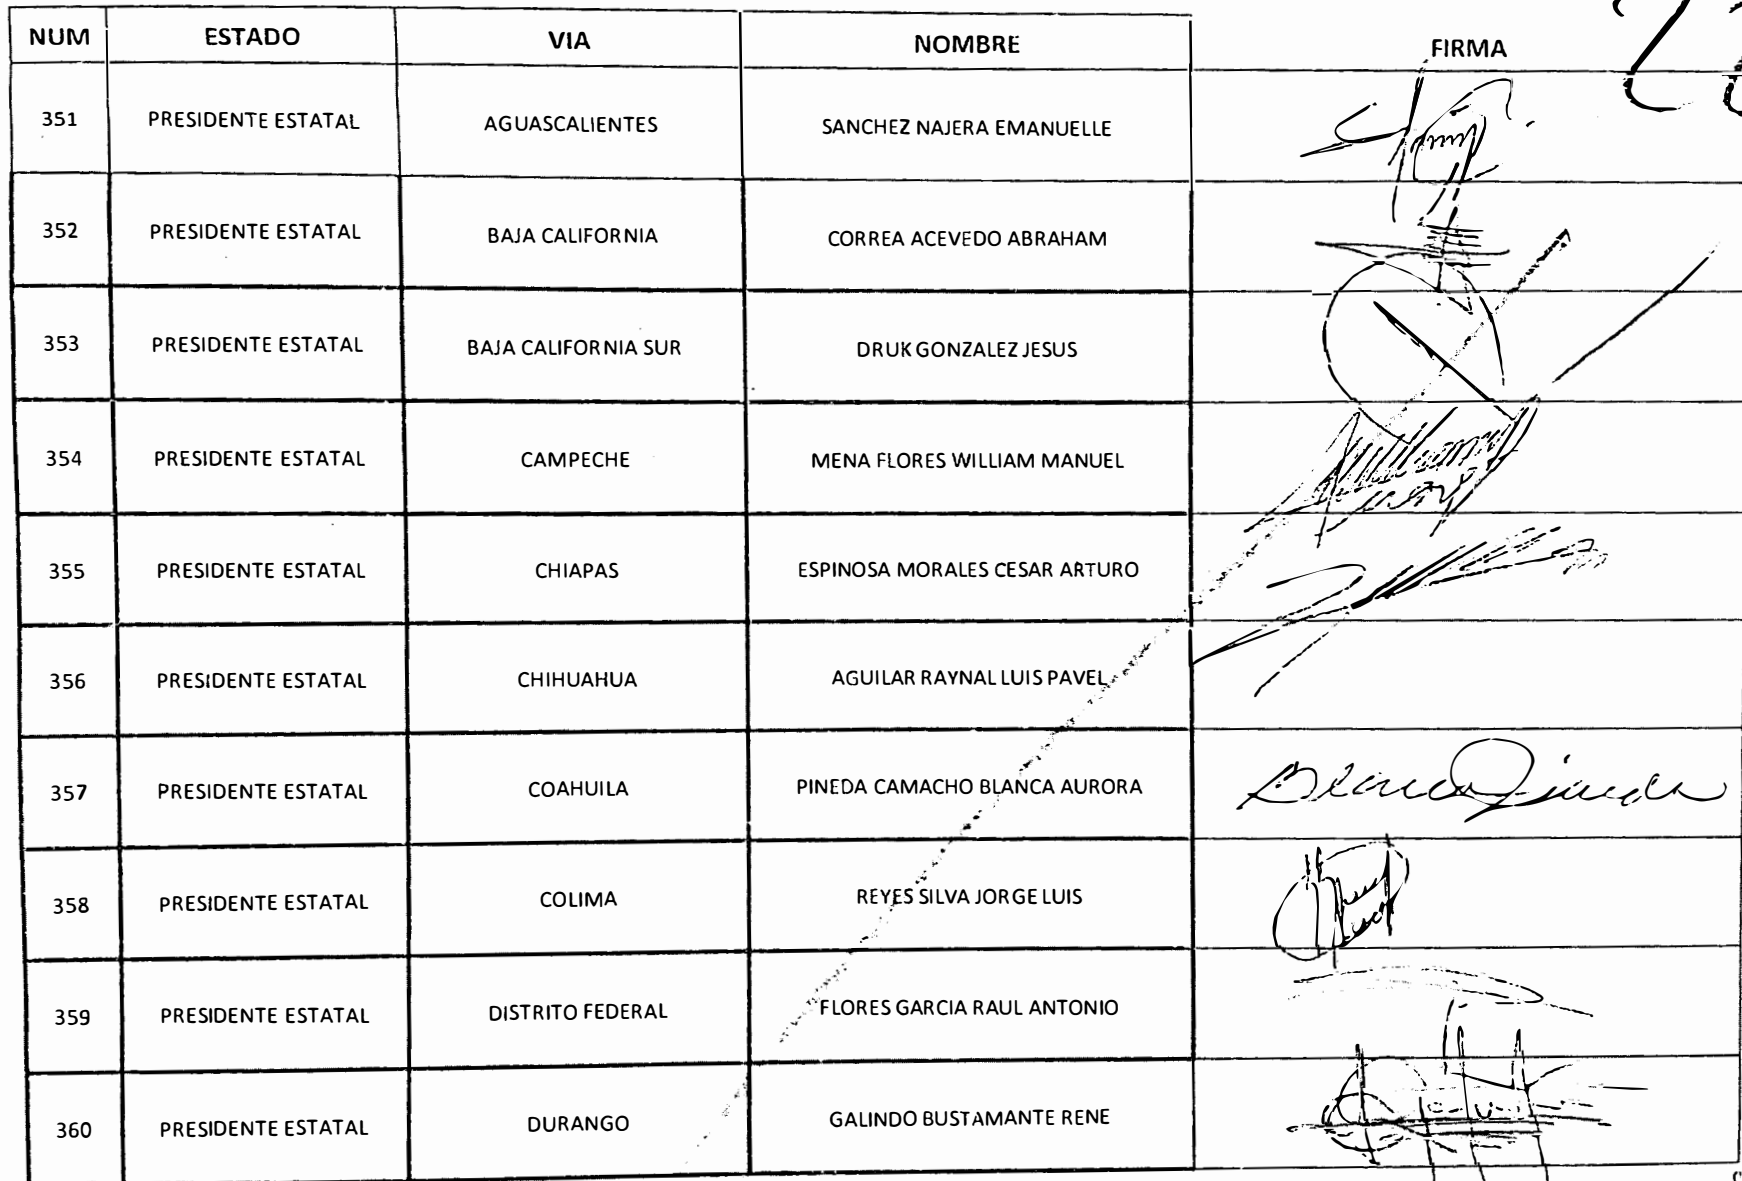 NUM ESTADO VIA NOMBRE FIRMA
351 PRESIDENTE ESTATAL AGUASCALIENTES SANCHEZ NAJERA EMANUELLE
352 PRESIDENTE ESTATAL BAJA CALIFORNIA CORREA ACEVEDO ABRAHAM
353 PRESIDENTE ESTATAL BAJA CALIFORNIA SUR DRUK GONZALEZ JESUS
354 PRESIDENTE ESTATAL CAMPECHE MENA FLORES WILLIAM MANUEL
355 PRESIDENTE ESTATAL CHIAPAS ESPINOSA MORALES CESAR ARTURO
356 PRESIDENTE ESTATAL CHIHUAHUA AGUILAR RAYNAL LUIS PAVEL
357 PRESIDENTE ESTATAL COAHUILA PINEDA CAMACHO BLANCA AURORA Blanca Pineda
358 PRESIDENTE ESTATAL COLIMA REYES SILVA JORGE LUIS
359 PRESIDENTE ESTATAL DISTRITO FEDERAL FLORES GARCIA RAUL ANTONIO
360 PRESIDENTE ESTATAL DURANGO GALINDO BUSTAMANTE RENE